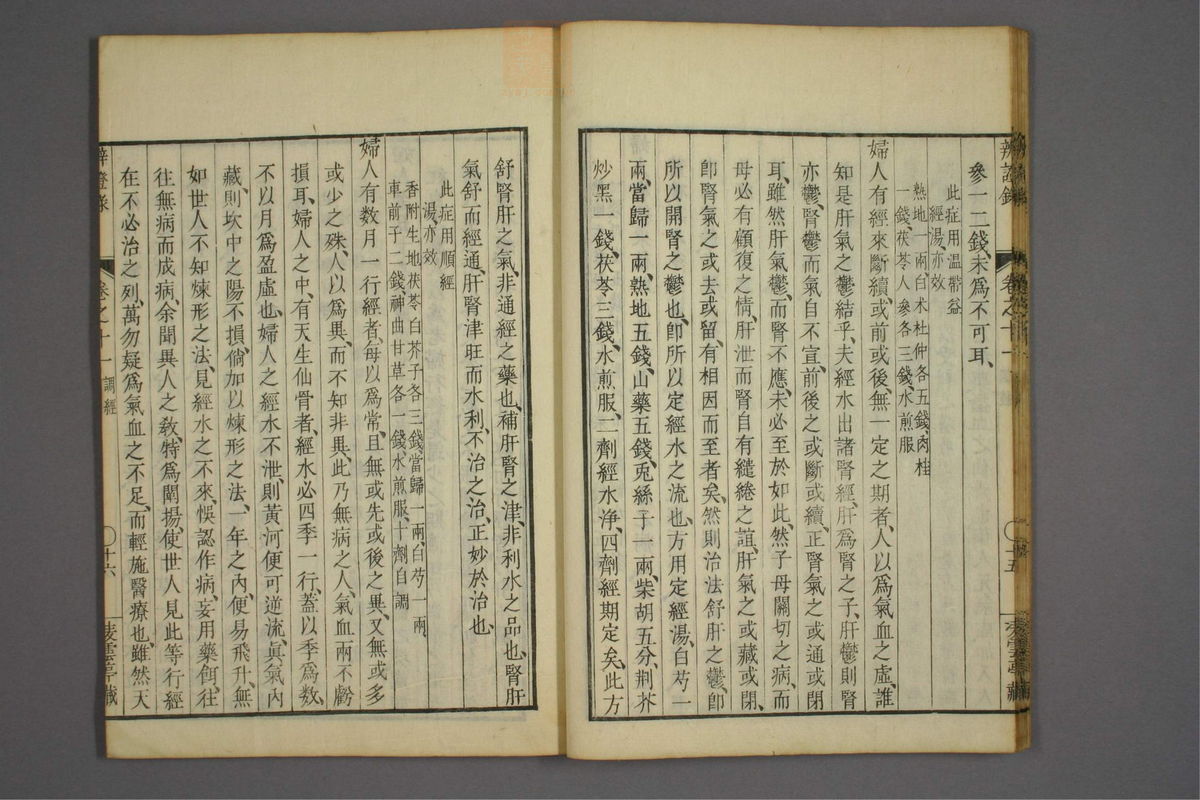 辨證錄 卷之十一 十五 凌雲亭藏
參一二錢、未爲不可耳、
此症用溫臍益
經湯、亦效
熟地一兩、白朮杜仲各五錢、肉桂
一錢、茯苓人參各三錢、水煎服
婦人有經來斷續、或前或後、無一定之期者、人以爲氣血之虛、誰
知是肝氣之鬱結乎、夫經水出諸腎經、肝爲腎之子、肝鬱則腎
亦鬱、腎鬱而氣自不宣、前後之或斷或續、正腎氣之或通或閉
耳、雖然肝氣鬱、而腎不應、未必至於如此、然子母關切之病、而
母必有顧復之情、肝泄而腎自有繾綣之誼、肝氣之或藏或閉、
卽腎氣之或去或留、有相因而至者矣、然則治法舒肝之鬱、卽
所以開腎之鬱也、卽所以定經水之流也、方用定經湯、白芍一
兩、當歸一兩、熟地五錢、山藥五錢、兎絲子一兩、柴胡五分、荆芥
炒黑一錢、茯苓三錢、水煎服、二劑經水淨、四劑經期定矣、此方
舒腎肝之氣、非通經之藥也、補肝腎之津、非利水之品也、腎肝
氣舒而經通、肝腎津旺而水利、不治之治、正妙於治也、
此症用順經
湯亦效
香附生地茯苓白芥子各三錢、當歸一兩、白芍一兩、
車前子二錢、神曲甘草各一錢、水煎服、十劑自調
婦人有数月一行經者、每以爲常、且無或先或後之異、又無或多
或少之殊、人以爲異、而不知非異、此乃無病之人、氣血兩不虧
損耳、婦人之中、有天生仙骨者、經水必四季一行、蓋以季爲数、
不以月爲盈虛也、婦人之經水不泄、則黃河便可逆流、眞氣内
藏、則坎中之陽不損、倘加以煉形之法、一年之内、便易飛升、無
如世人不知煉形之法、見經水之不來、悞認作病、妄用藥餌、往
往無病而成病、余聞異人之敎、特爲闡揚、使世人見此等行經
在不必治之列、萬勿疑爲氣血之不足、而輕施醫療也、雖然天
辨證錄 卷之十一 調經 十六 凌雲亭藏